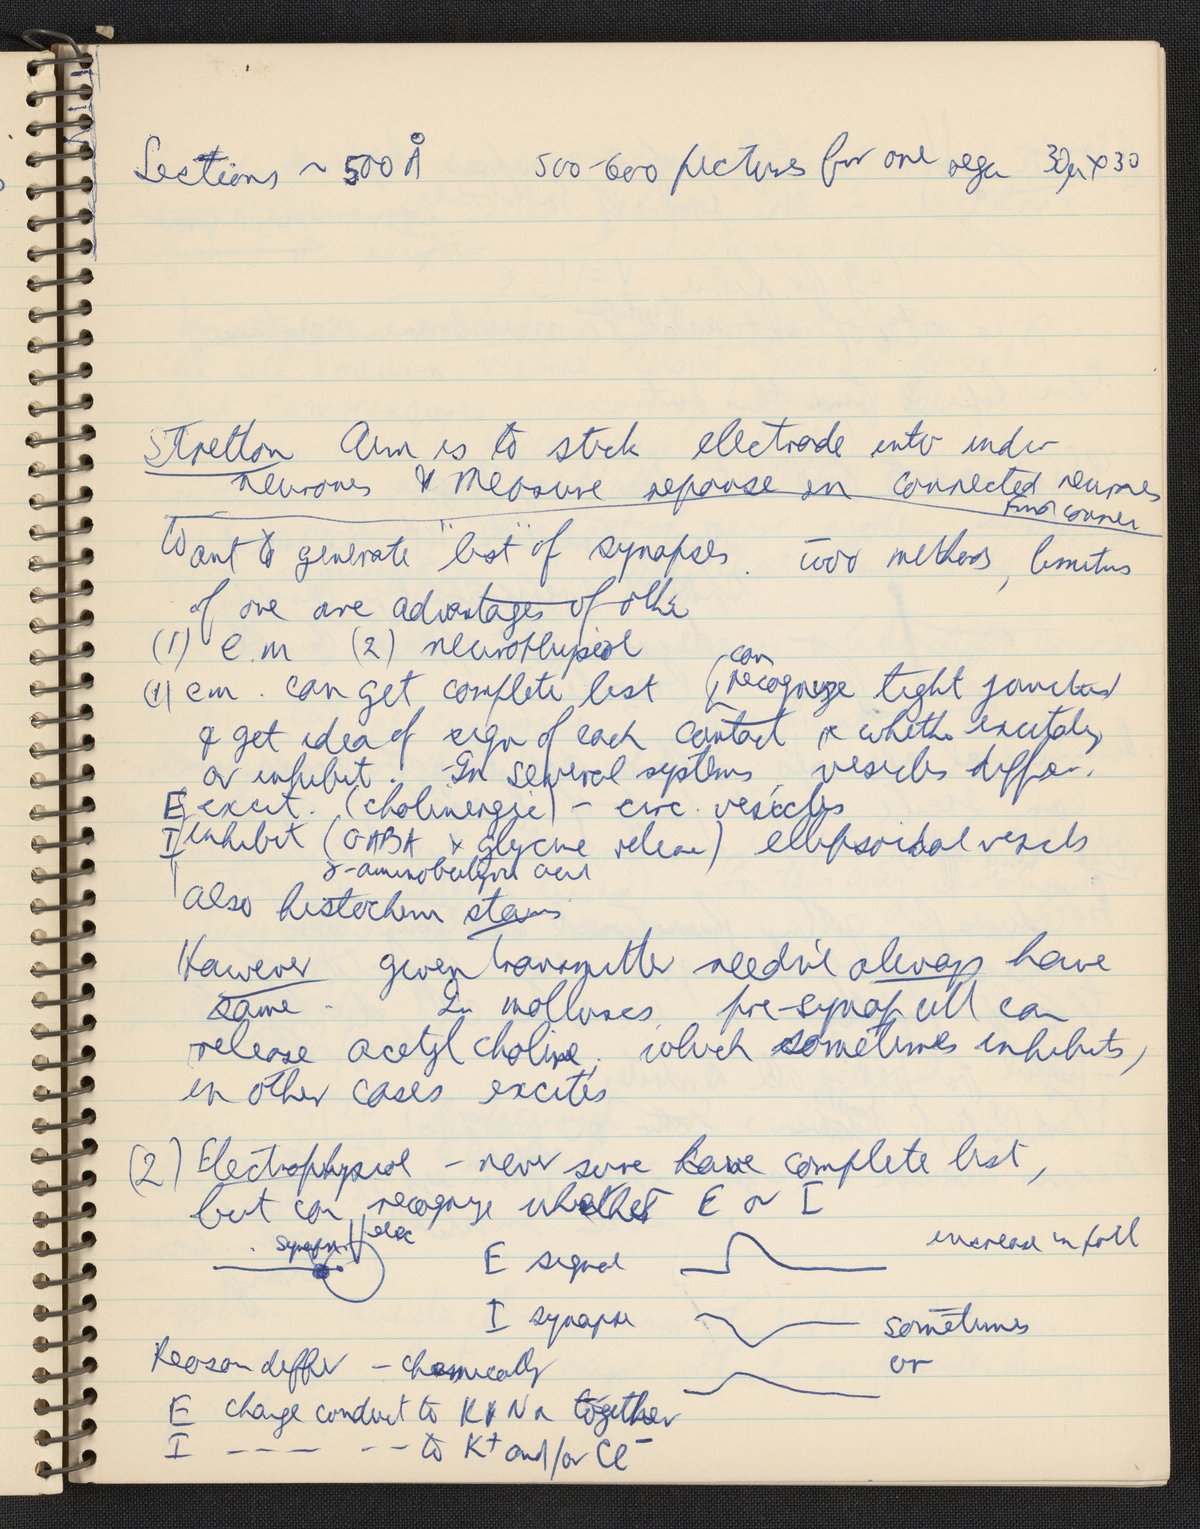 Sections ~ 500 Å 500-600 pictures for one 30µ x 30
Stretton Aim is to stick electrode into
neurones & measure reponse in connected neurones
Want to generate "list" of synapses. two methods,
of one are advantages of othe
(1) e.m (2) neurophysiol
(1) em. can get complete list (can
recognize tight
& get idea of sign of each contact ie whethe
or inhibit. In several systems vesicles differ.
E excit. (cholinergic) - circ. vesicles
I inhibit (GABA & glycine release) ellipsoidal
γ-aminobutyric acid
also histochem stains
However given transmitter needn't always have
same. In molluscs pre-synap cell can
release acetyl choline, which sometimes inhibits,
in other cases excites
(2) Electrophysiol - never sure have complete list,
but can recognize whether E or I
elec
E signal increase in
I synapse sometimes
or
Reason differ - chemically
E change conduct to K & Na together
I --- -- to K⁺ and/or Cl⁻